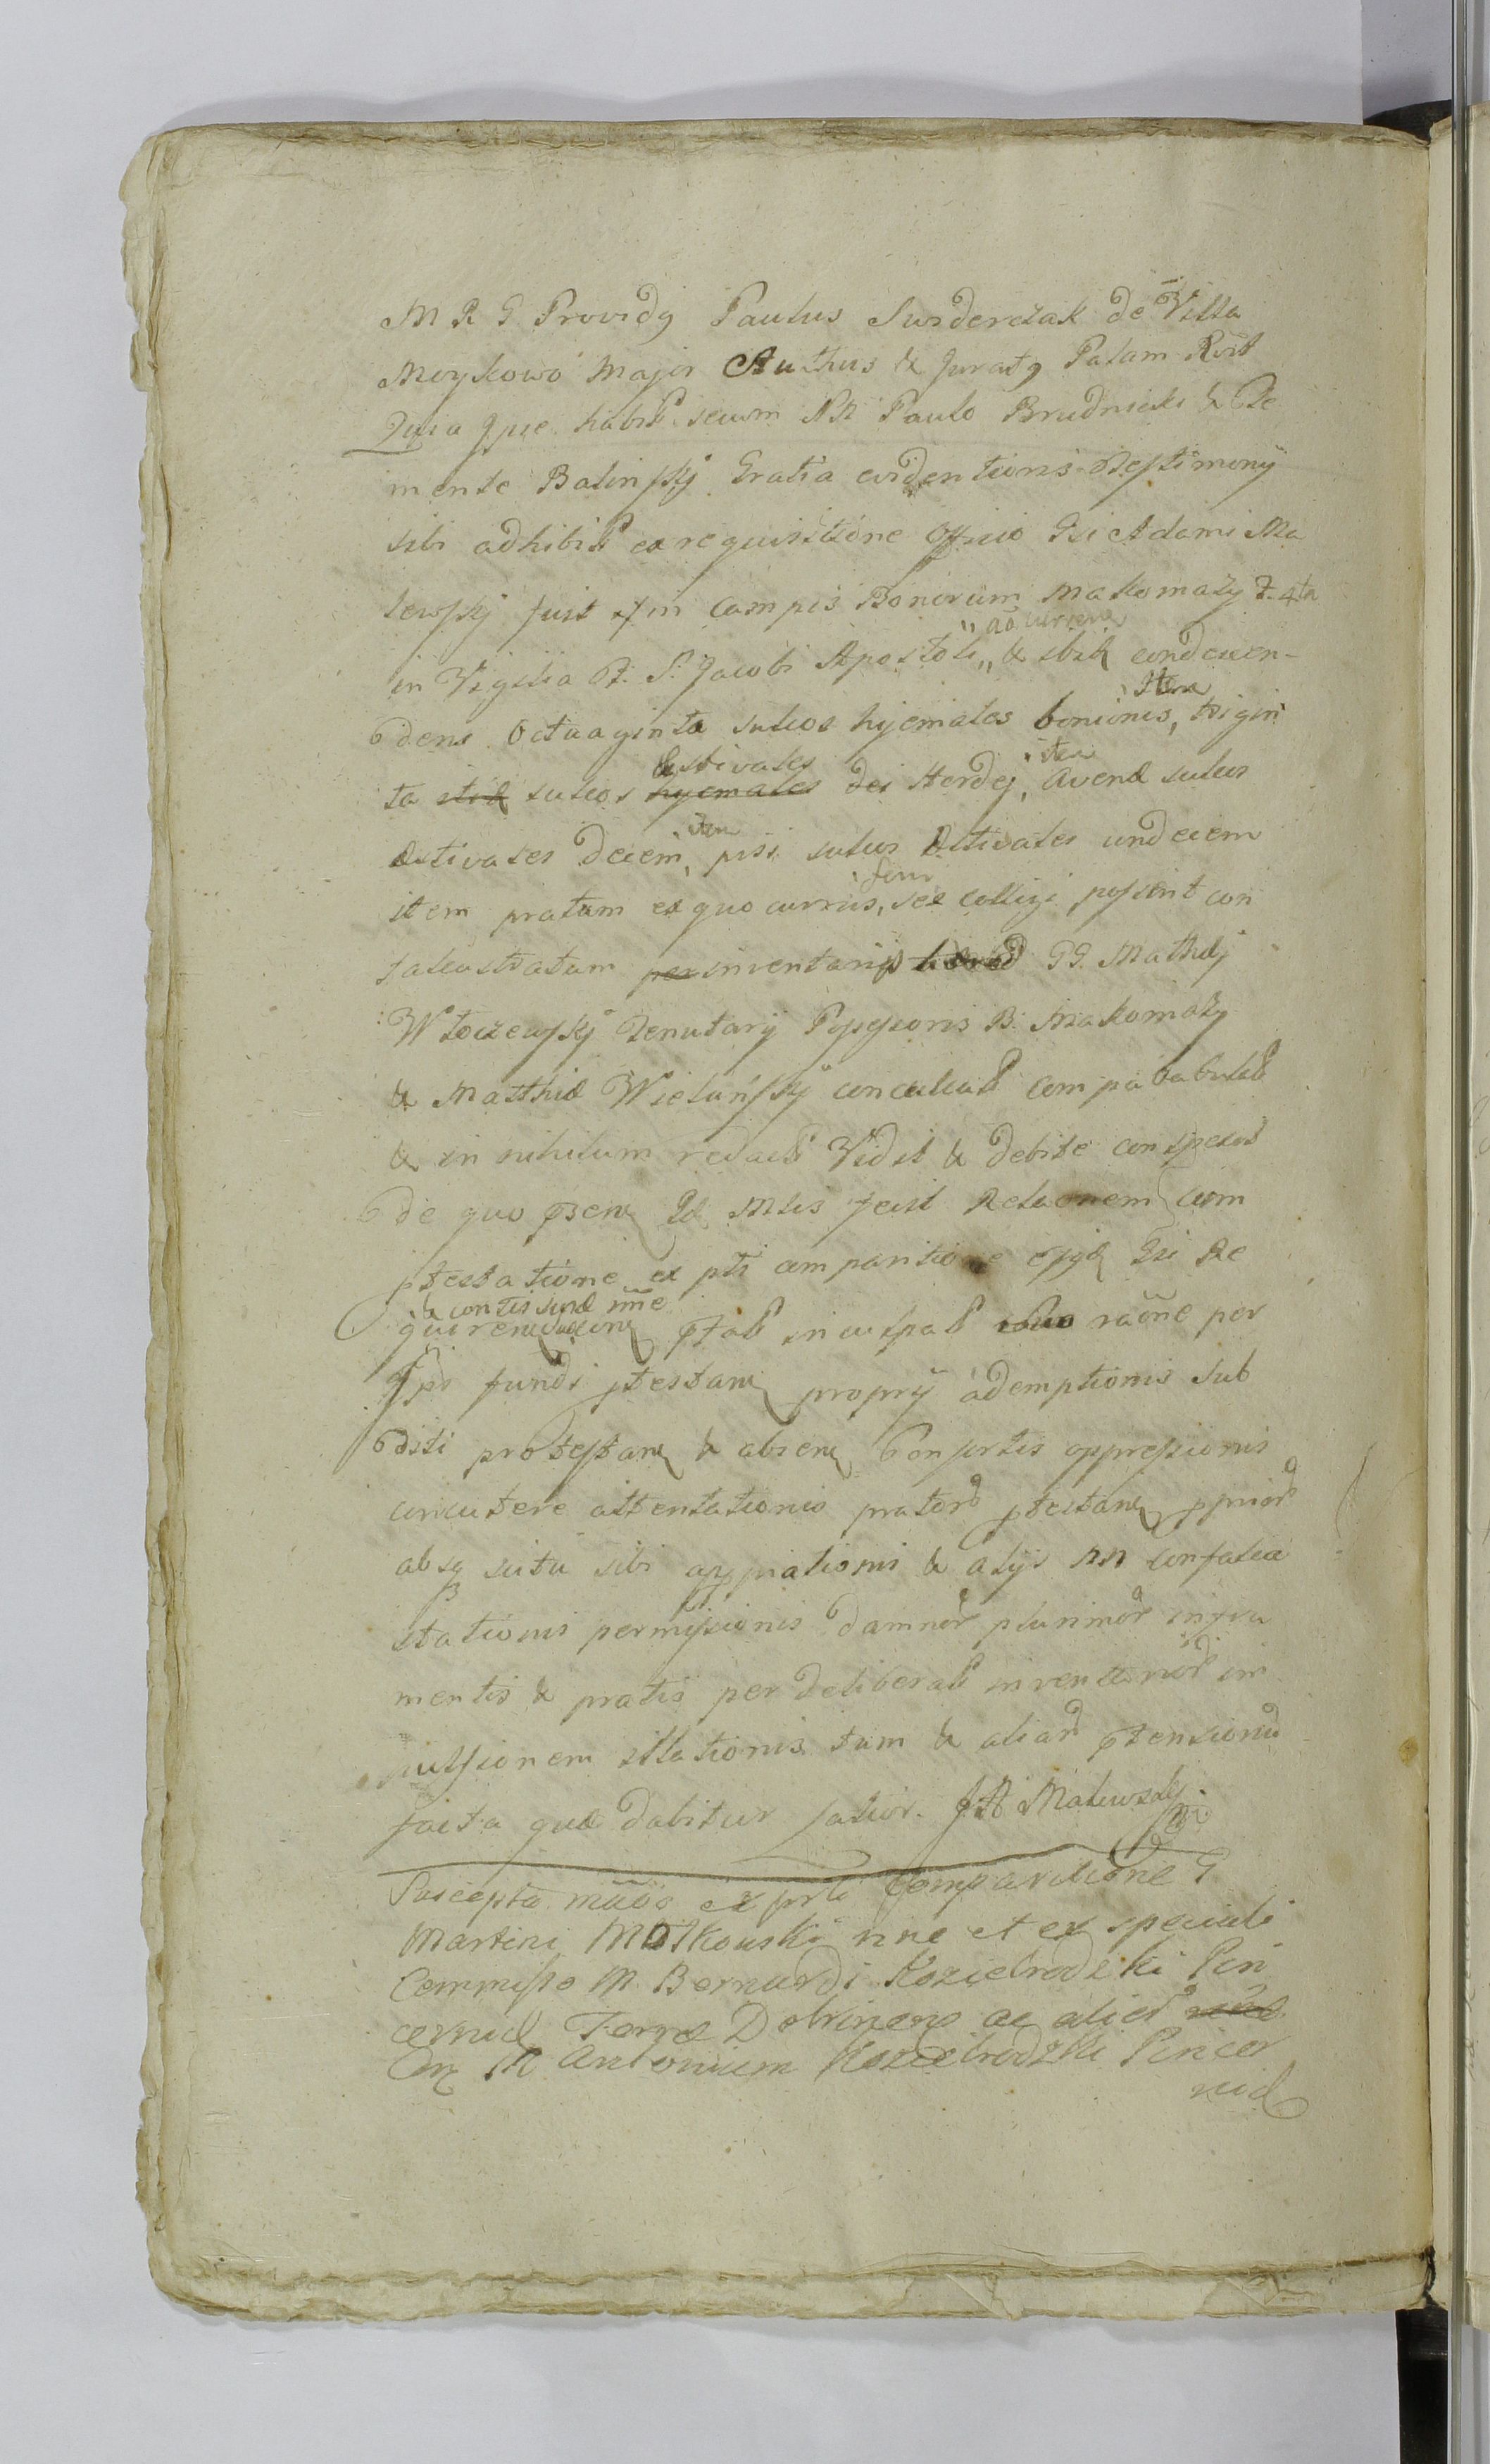 M R G Providg Paulus Swiderczak de Villa
Moykowo Major Authus & Juratg Palam
Quia Ipse habit secum NN Paulo Brudnicki & Cle
mente Balinskj Gratia evidentioris testimonij
sibi adhibit ex requisitione Officio Gsi Adami Ma
lewskj fuit in Campis Bonorum Makomazy F. 4ta
in Vigilia B. S. Jacobi Apostoli „ ad & ibiq condescen-
dens Octuaginta sulcos hyemales Item trigin
ta sulcos hyemales Estivales Hordej, item avenæ sulcos
æstivales decem, item pisi sulcos Æstivales undecem
item pratum ex quo currus, foeni sex colligi possent con
falcastratum per inventarij GG. Mathæj
Wloczewskj Tenutarij Possessoris B. Makomazy
& Matthiæ Wielunskj conculcat compabulat
& in nihilum redact Vidit & debite conspexit
de quo Mlis fecit Relaonem cum
ptestatione ex pti comparitione Gsi Re
quiren & contis suæ nne inculpat raône per
Ips fundi ptestan proprij ademptionis sub
diti protestan & absen Consortis oppressionis
concutere attentationis prator ptestan
absq scitu sibi appriationis & alijs nn confalca
stationis permissionis damnor plurimor in fru
mentis & pratis per deliberat inventarior im
pulsionem illationis tum & aliar ptensionu
facta quæ dabitur salvis. J A Malewskj
Suscepta ex prti Comparitione G
Martini Motkowski nne et ex speciali
Commisso M. Bernardi Koziebrodzki Pin
cernid Terræ Dobrinens ac alior
M Antonium Koziebrodzki Pincer
nid